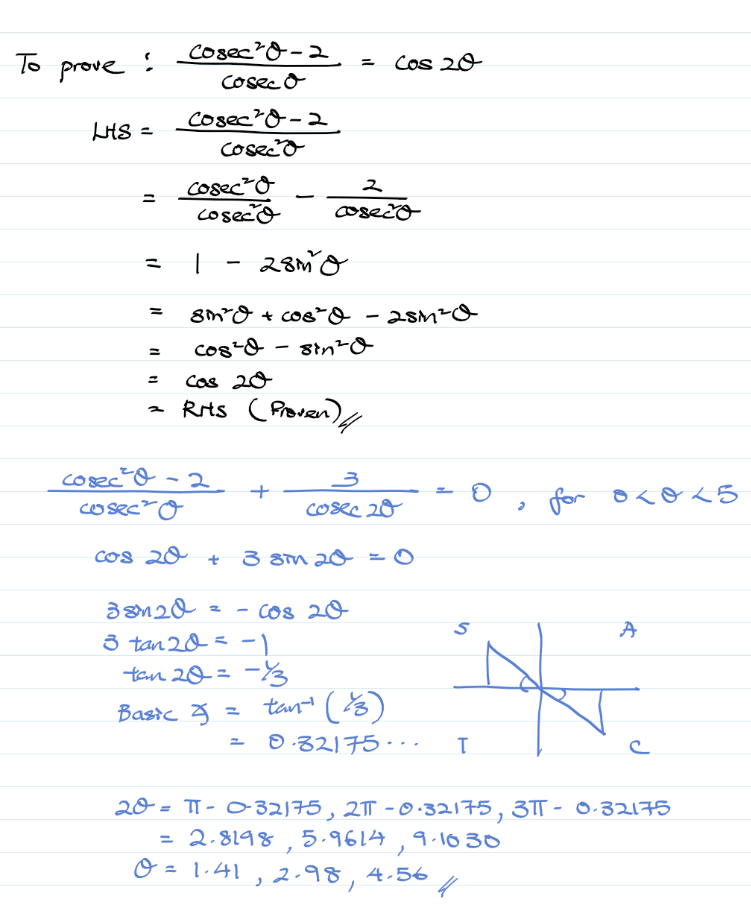 To prove : (cosec²θ - 2)/(cosec θ) = cos 2θ
LHS = (cosec²θ - 2)/(cosec²θ)
= (cosec²θ)/(cosec²θ) - 2/(cosec²θ)
= 1 - 2sin²θ
= sin²θ + cos²θ - 2sin²θ
= cos²θ - sin²θ
= cos 2θ
= RHS (Proven)
(cosec²θ - 2)/(cosec²θ) + 3/(cosec 2θ) = 0 , for 0<θ<5
cos 2θ + 3 sin 2θ = 0
3 sin 2θ = - cos 2θ
3 tan 2θ = -1
tan 2θ = -1/3
Basic ∡ = tan⁻¹ (1/3)
= 0.32175...
S A
T C
2θ = π - 0.32175, 2π - 0.32175, 3π - 0.32175
= 2.8198, 5.9614, 9.1030
θ = 1.41, 2.98, 4.56